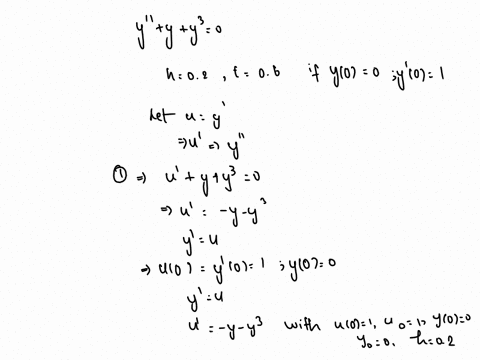 y''+y+y³=0
h=0.2, t=0.6 if y(0)=0 ; y'(0)=1
Let u=y'
⇒u' ⇒ y''
① ⇒ u'+y+y³=0
⇒ u' = -y-y³
y'=u
⇒ u(0) = y'(0)=1 ; y(0)=0
y'=u
u'=-y-y³ with u(0)=1, u₀=1, y(0)=0
y₀=0, h=0.2